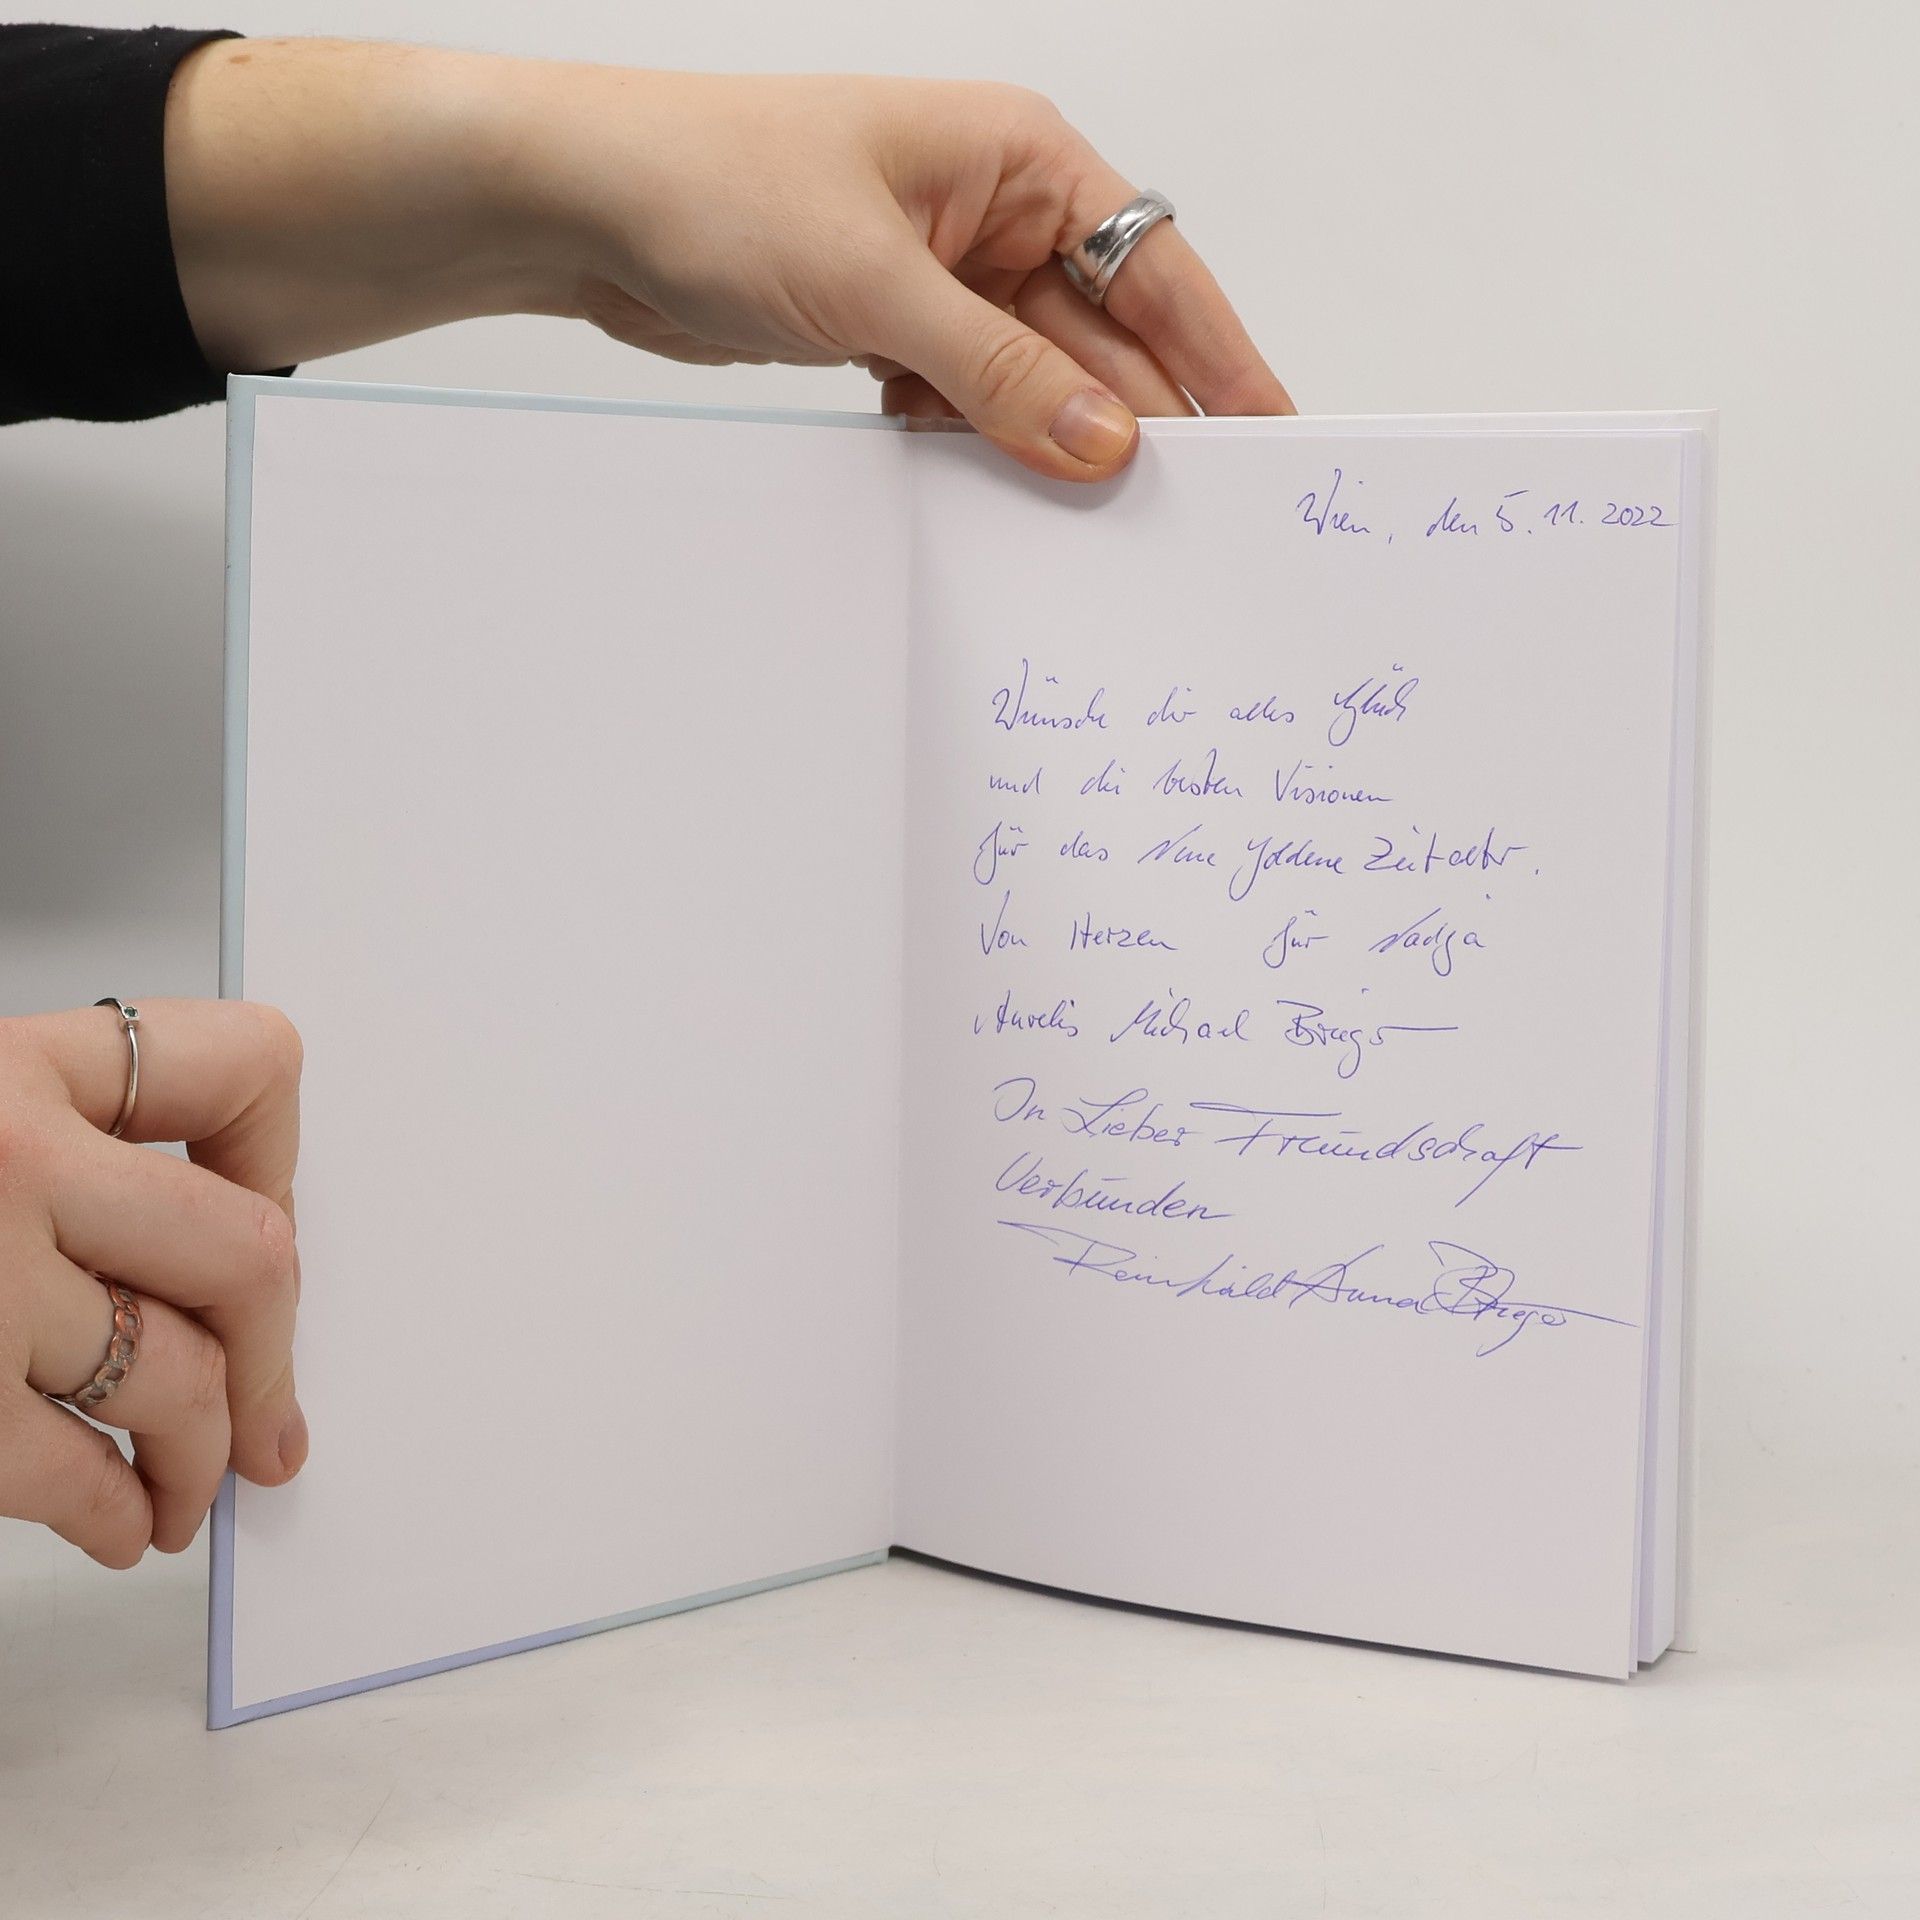 Wien, den 5.11.2022
Wünsche dir alles Glück
und die besten Visionen
für das Neue Goldene Zeitalter.
Von Herzen für Nadja
Michael
In Lieber Freundschaft
Verbunden
Anna